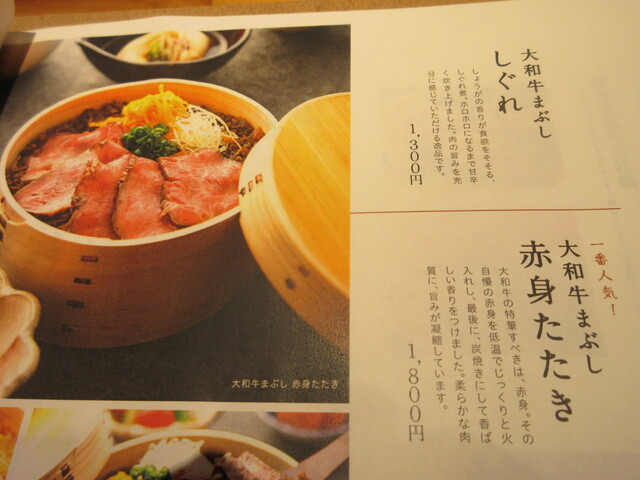 大和牛まぶし
しぐれ
しょうがの香りが食欲をそそる、
しぐれ煮。ホロホロになるまで甘辛
く炊き上げました。肉の旨みを充
分に感じていただける逸品です。
1,300円
一番人気！
大和牛まぶし
赤身たたき
大和牛の特筆すべきは、赤身。その
自慢の赤身を低温でじっくりと火
入れし、最後に、炭焼きにして香ば
しい香りをつけました。柔らかな肉
質に、旨みが凝縮しています。
1,800円
大和牛まぶし 赤身たたき